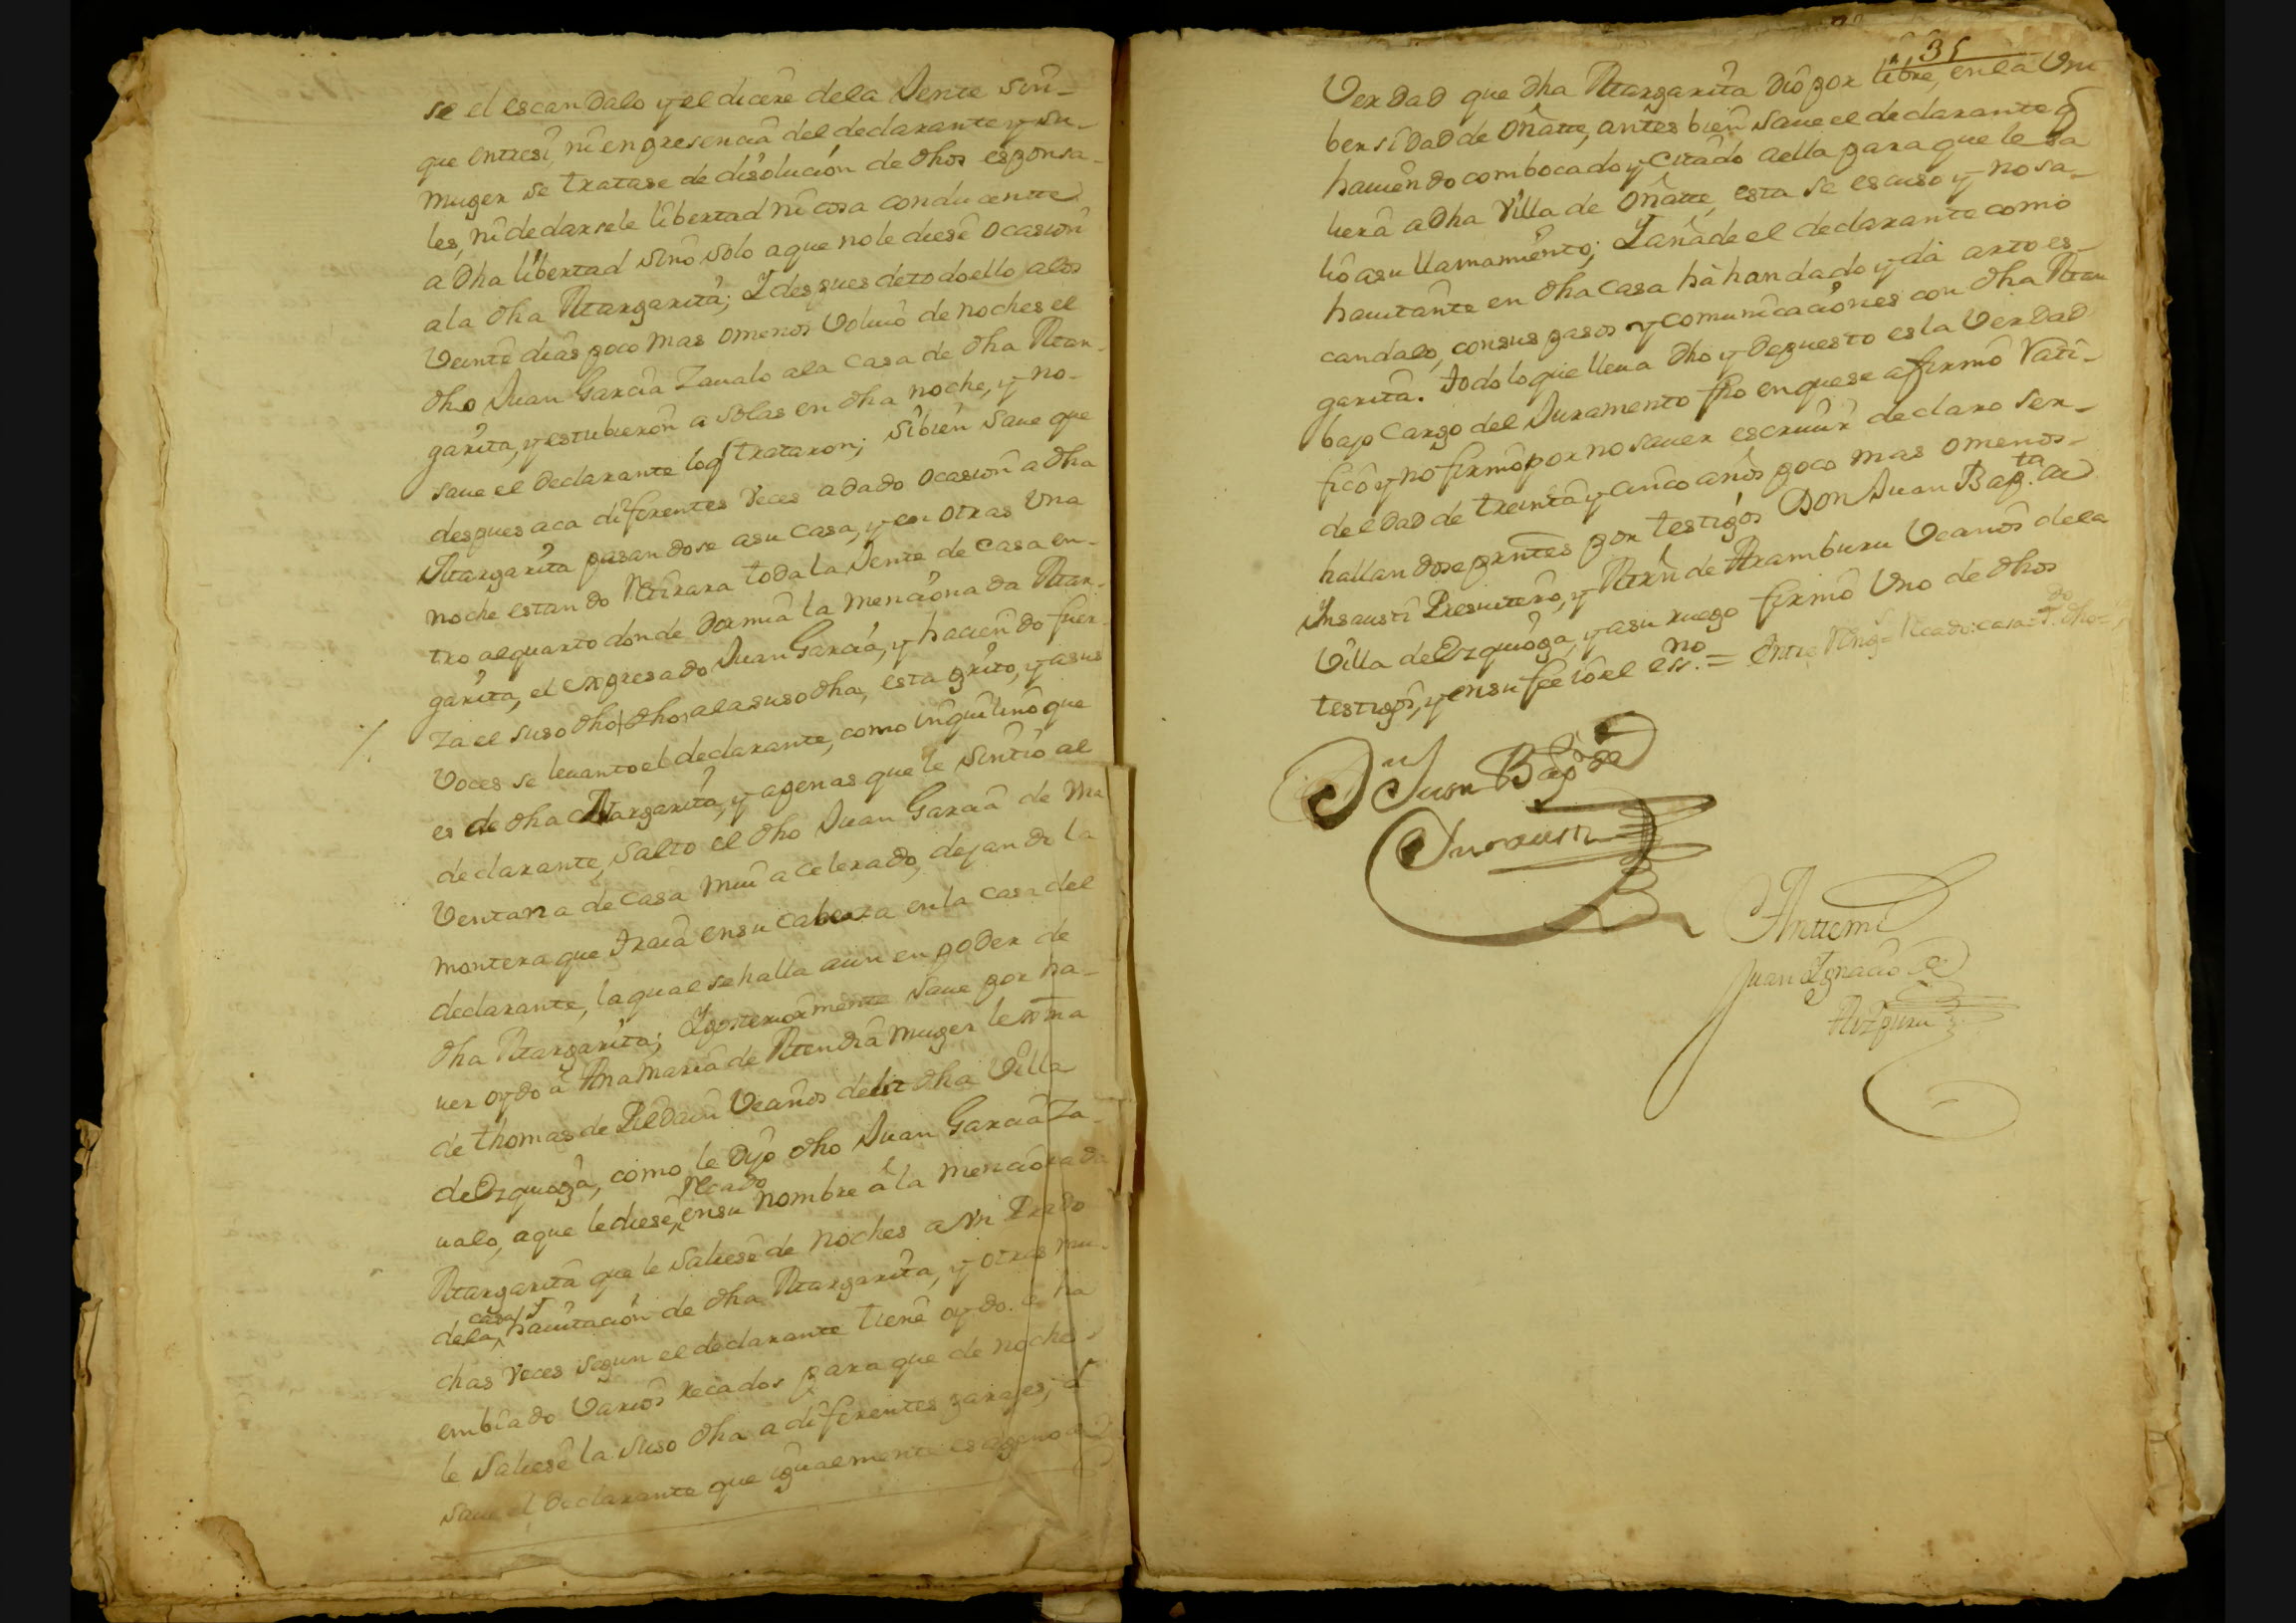 se el escandalo y el dicere dela Jente sin-
que entresi, ni en presencia del declarante y su-
muger se tratase de disolucion de dhos esponsa-
les, ni de darsele libertad ni cosa conducente
a dha libertad sino solo a que no le diese ocasion
ala dha Margarita; Y despues detodoello alos
Veinte dias poco mas omenos Voluio de noches el
dho Juan Garcia Zaualo ala casa de dha Mar-
garita, y estubieron a solas en dha noche, y no-
saue el declarante loq trataron; sibien saue que
despues aca diferentes Veces adado ocasion a dha
Margarita pasandose asu casa, y en otras Una
noche estando Retirara toda la Jente de casa en-
tro alquarto donde dormia la mencionada Mar-
garita, el expresado Juan Garcia, y haciendo fuer-
za el suso dho, dho, ala suso dha, esta grito, y asus
Voces se leuanto el declarante, como inquilino que
es de dha Margarita, y apenas que le sintio al
declarante, salto el dho Juan Garcia de Ma
Ventana de casa mui acelerado, dejando la
montera que traia ensu cabeza enla casa del
declarante, laqual se halla aun en poder de
dha Margarita; Y posteriormente saue por ha-
uer oydo a Ana Maria de Mendia muger lexma
de thomas de Uecinos dela dha Villa
de Ezquioga, como le dijo dho Juan Garcia Za-
ualo, aque lediese, ensu nombre a la mencionada
Recado
Margarita que le saliese de noches a un Prado
dela, hauitacion de dha Margarita, y otras mu-
casa
chas Veces segun el declarante tiene oydo a ha
embiado Varios recados para que de noche
le saliese la suso dha a diferentes parajes;
saue el declarante que igualmente es ageno de
31
Verdad que dha Margarita dio por libre, enla Uni
bersidad de Oñatte, antes bien saue el declarante q
hauiendo combocado y citado aella para que le sa
liera a dha Villa de Oñatte, esta se escuso y no sa-
lio asu llamamiento; Yañade el declarante como
hauitante en dha casa ha handado y da arto es-
candalo, consus pasos y comunicaciones con dha Mar
garita. todo loque lleua dho y depuesto es la Verdad
bajo Cargo del Juramento fho en que se afirmo Rati-
fico y no firmo por no sauer escriuir declaro ser-
del dad de treinta y cinco años poco mas omenos-
hallandose prntes por testigos Don Juan Bap.ta de
Insausti Presuitero, y Mrn de Aramburu Vecinos dela
Villa de Ezquioga, y asu ruego firmo Uno de dhos
testigos, y ensu fee io el essno.= Entre Rings= Rcado: casa=
Dn Juan Bapta de
Insausti
Antemi
Juan Ignacio de
Aizpuru